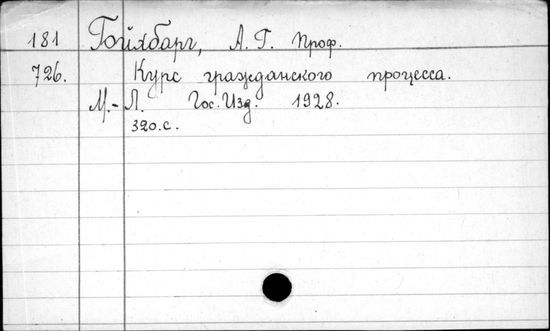 181 Гойхбарг, А. Г. Проф.
726. Курс гражданского процесса.
М.-Л. Гос. Изд. 1928.
320.с.